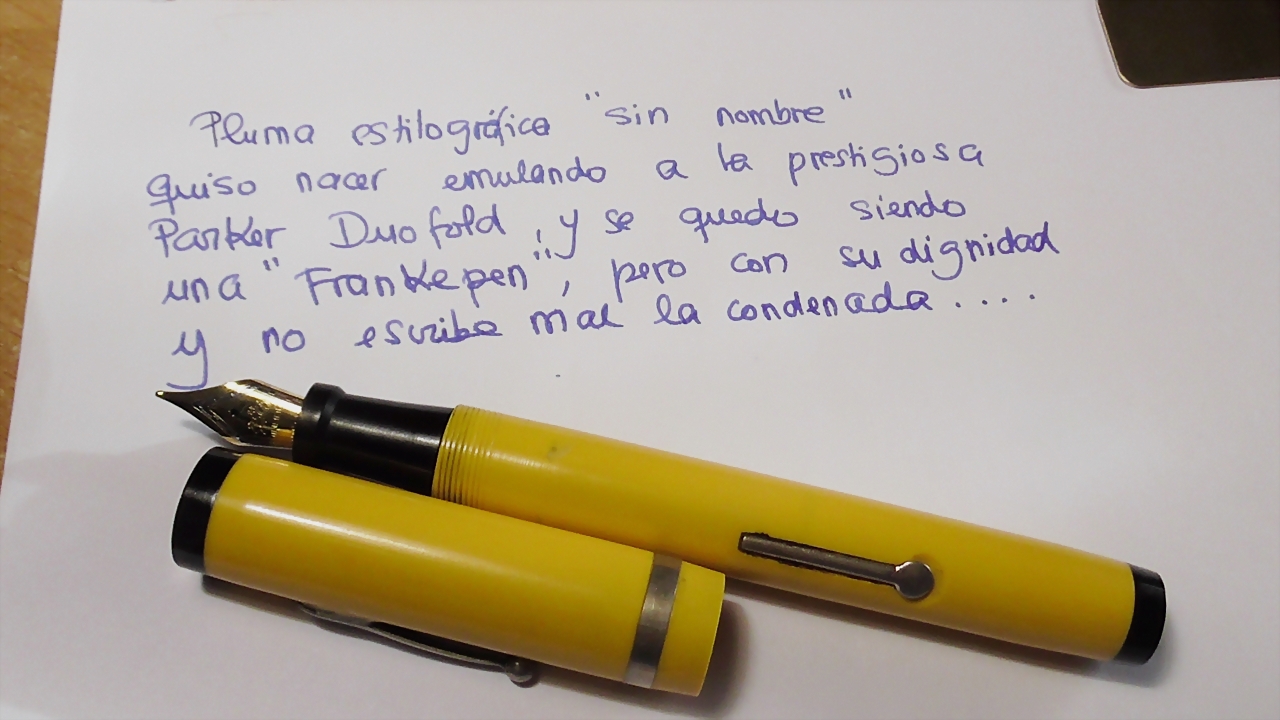 Pluma estilográfica "sin nombre"
quiso nacer emulando a la prestigiosa
Parker Duofold, y se quedo siendo
una "Frankepen", pero con su dignidad
y no escribe mal la condenada....